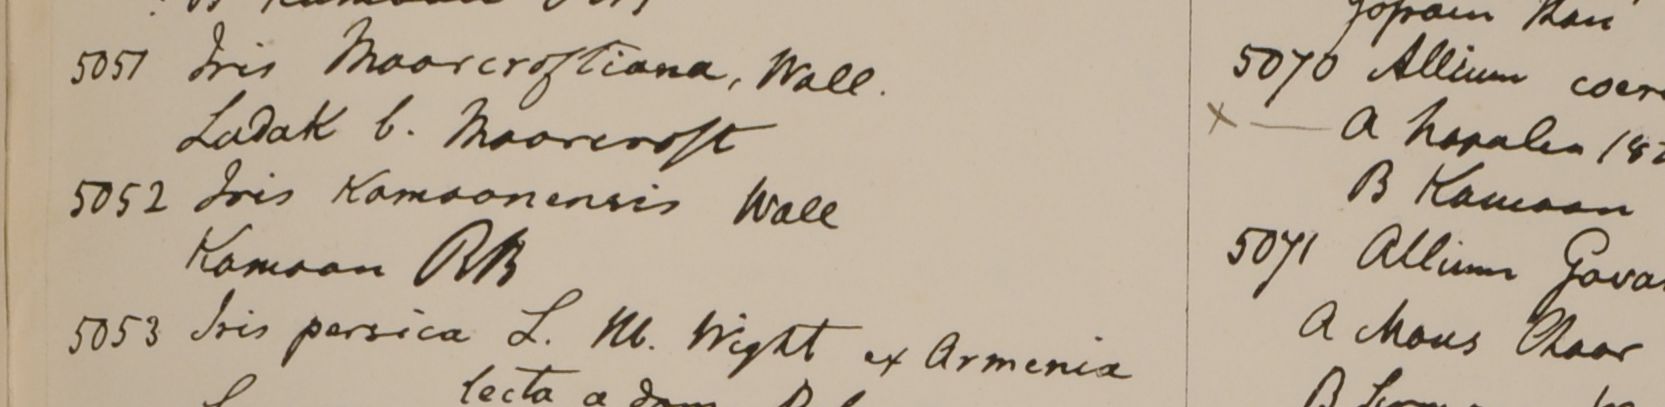 5051 Iris Moorcroftiana, Wall.
Ladak C. Moorcroft
5052 Iris Kamoonensis Wall
Kamoon RB
5053 Iris persica L. M. Wight ex Armenia
lecta a
5070 Allium
A 
B Kamoon
5071 Allium
A Mons Choor
B